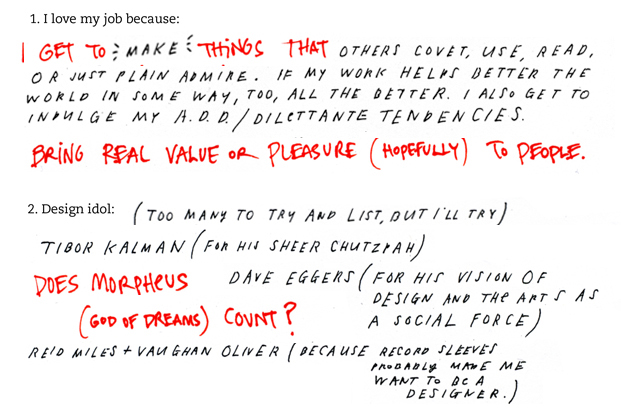 1. I love my job because:
I GET TO MAKE THINGS THAT OTHERS COVET, USE, READ,
OR JUST PLAIN ADMIRE. IF MY WORK HELPS BETTER THE
WORLD IN SOME WAY, TOO, ALL THE BETTER. I ALSO GET TO
INDULGE MY A.D.D./DILETTANTE TENDENCIES.
BRING REAL VALUE OR PLEASURE (HOPEFULLY) TO PEOPLE.
2. Design idol: (TOO MANY TO TRY AND LIST, BUT I'LL TRY)
TIBOR KALMAN (FOR HIS SHEER CHUTZPAH)
DOES MORPHEUS
(GOD OF DREAMS) COUNT?
DAVE EGGERS (FOR HIS VISION OF
DESIGN AND THE ARTS AS
A SOCIAL FORCE)
REID MILES + VAUGHAN OLIVER (BECAUSE RECORD SLEEVES
PROBABLY MADE ME
WANT TO BE A
DESIGNER.)